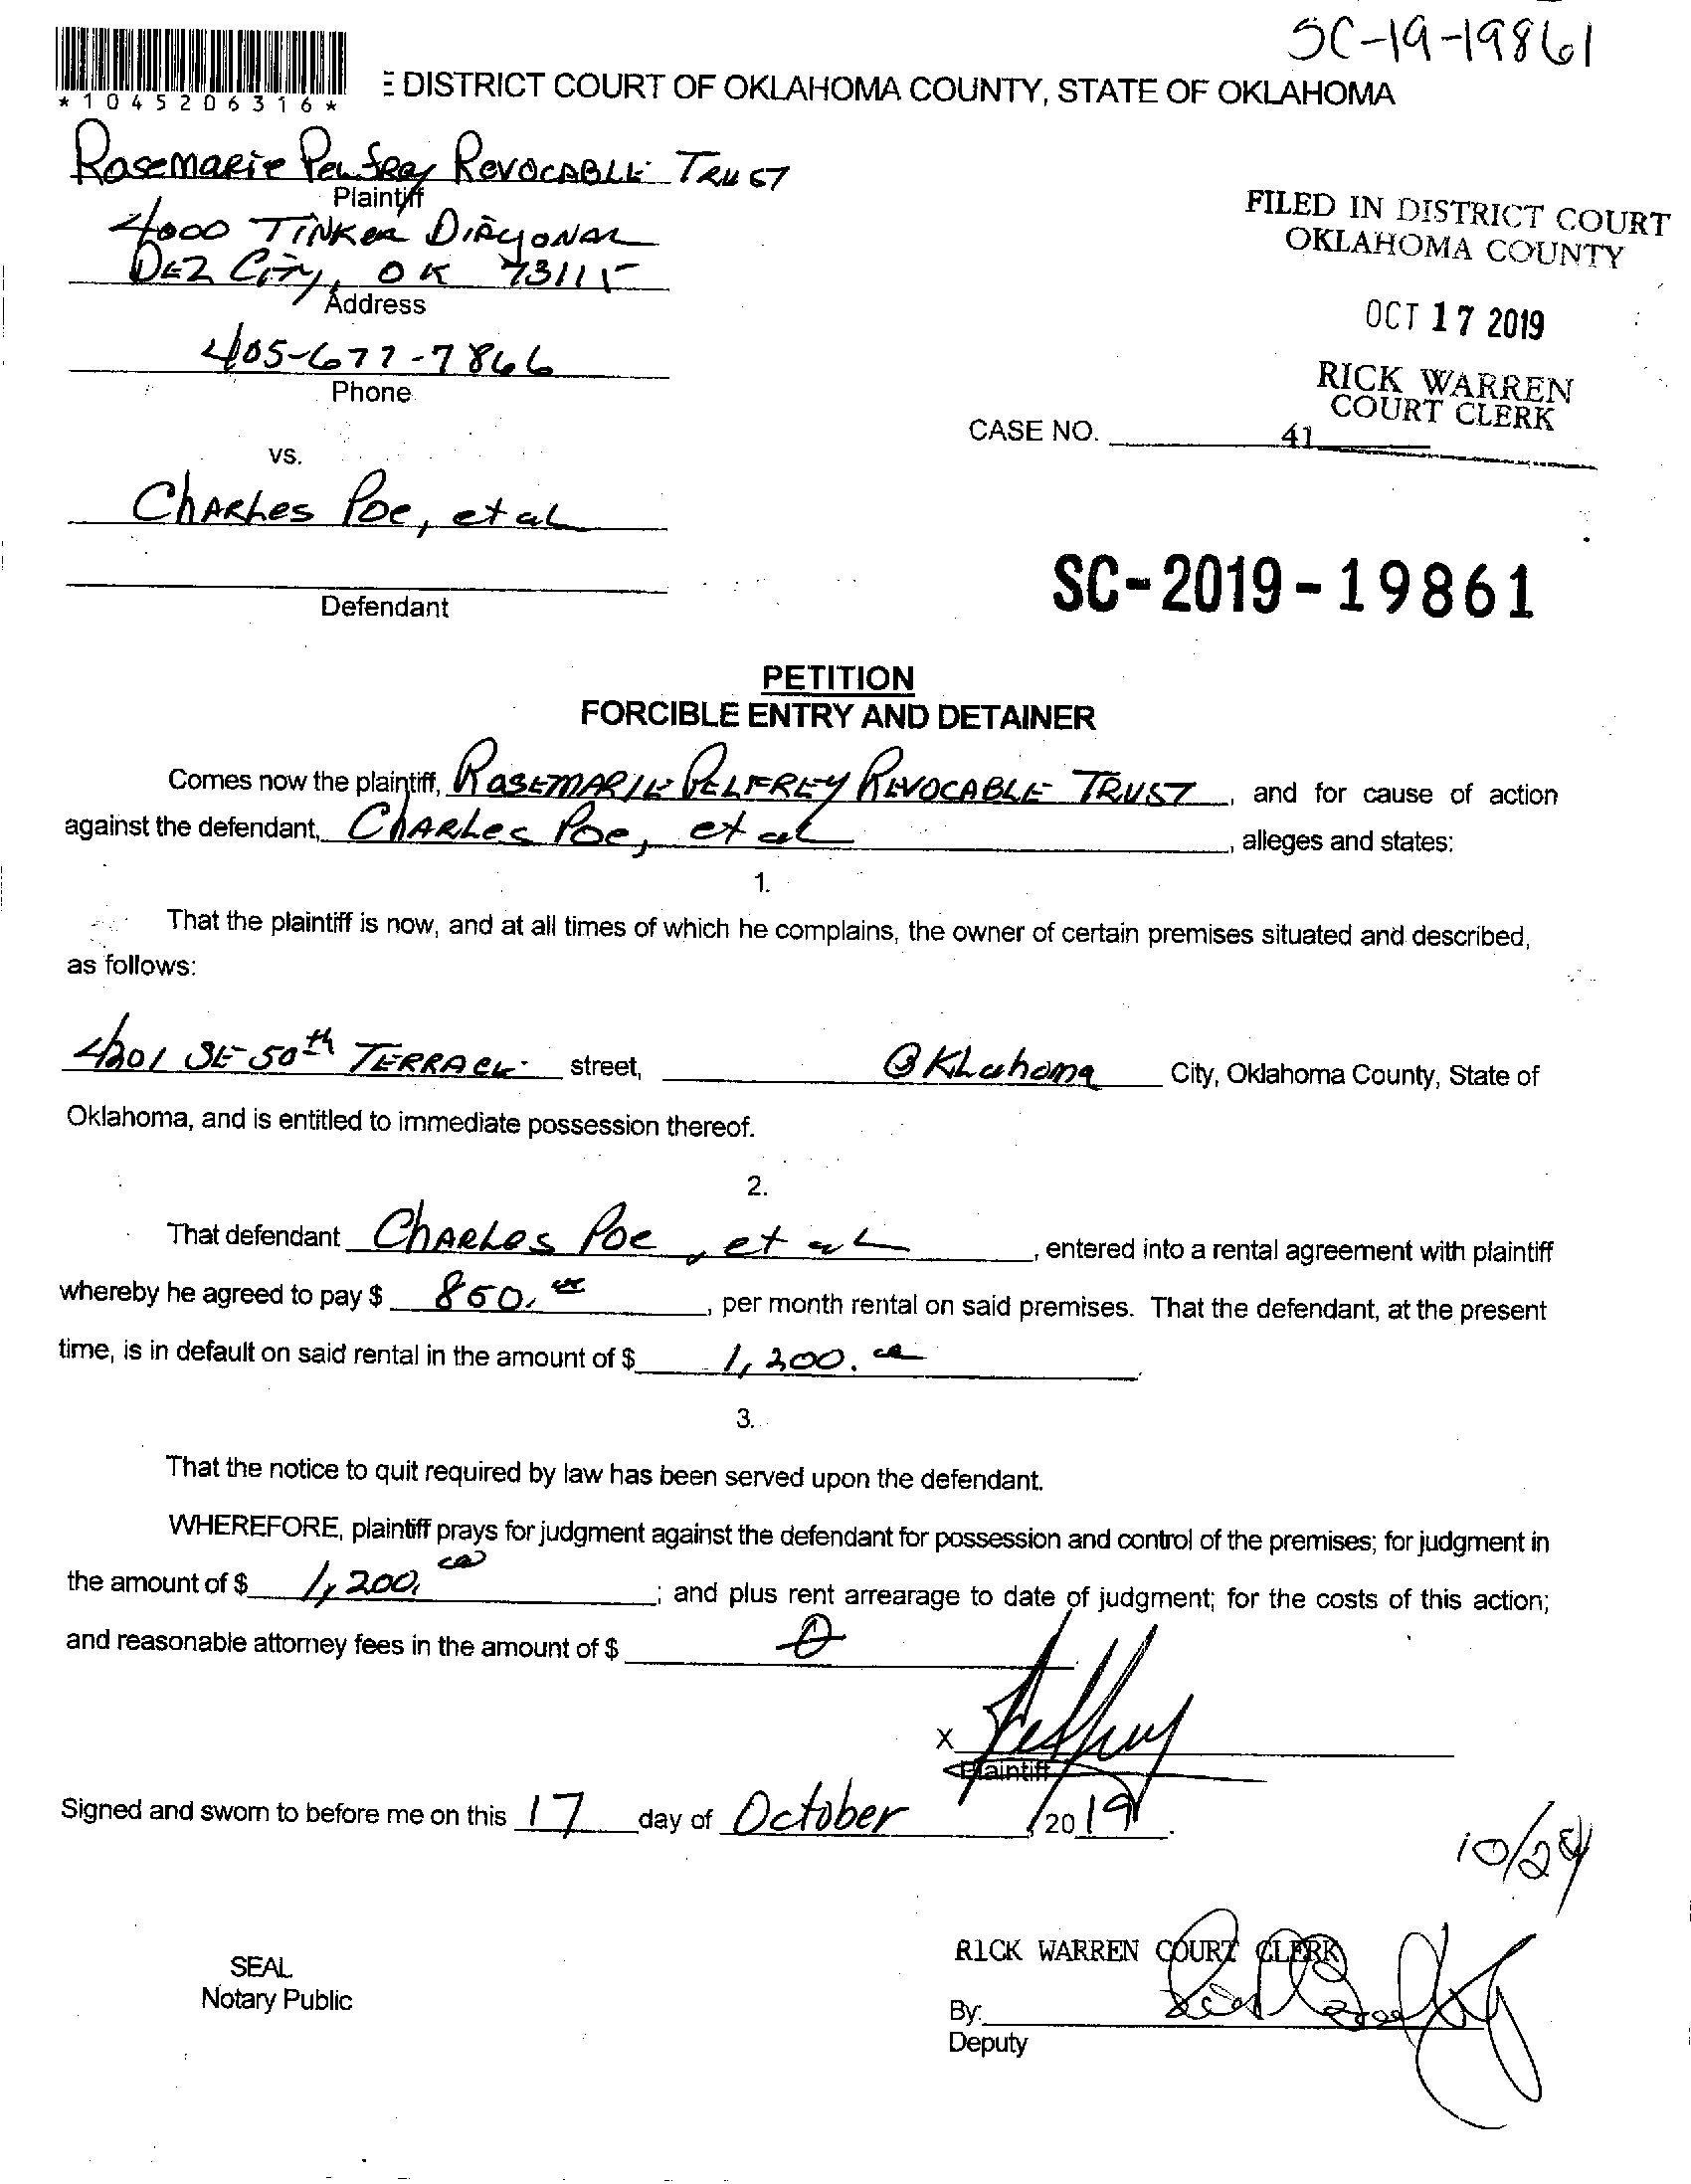 SC-19-19861
*1045206316*
E DISTRICT COURT OF OKLAHOMA COUNTY, STATE OF OKLAHOMA
Rosemarie Pelfrey Revocable Trust
Plaintiff
4000 Tinker Diagonal
Del City, OK 73115
Address
405-677-7866
Phone
FILED IN DISTRICT COURT
OKLAHOMA COUNTY
OCT 17 2019
RICK WARREN
COURT CLERK
CASE NO. 41
vs.
Charles Poe, et al
Defendant
SC-2019-19861
PETITION
FORCIBLE ENTRY AND DETAINER
Comes now the plaintiff, Rosemarie Pelfrey Revocable Trust, and for cause of action
against the defendant, Charles Poe, et al, alleges and states:
1.
That the plaintiff is now, and at all times of which he complains, the owner of certain premises situated and described,
as follows:
4201 SE 50th Terrace street, Oklahoma City, Oklahoma County, State of
Oklahoma, and is entitled to immediate possession thereof.
2.
That defendant Charles Poe, et al, entered into a rental agreement with plaintiff
whereby he agreed to pay $ 850.00, per month rental on said premises. That the defendant, at the present
time, is in default on said rental in the amount of $ 1,200.00.
3.
That the notice to quit required by law has been served upon the defendant.
WHEREFORE, plaintiff prays for judgment against the defendant for possession and control of the premises; for judgment in
the amount of $ 1,200.00; and plus rent arrearage to date of judgment; for the costs of this action;
and reasonable attorney fees in the amount of $ 0
X Pelfrey
Plaintiff
Signed and sworn to before me on this 17 day of October, 2019.
10/24
SEAL
Notary Public
RICK WARREN COURT CLERK
By:
Deputy